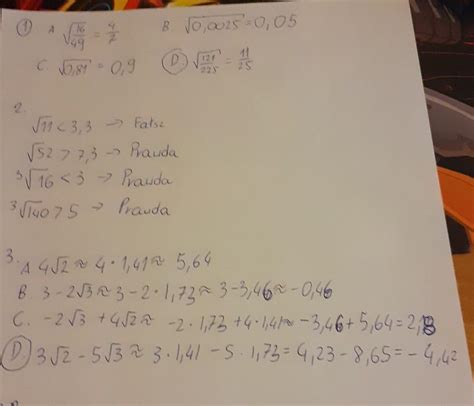 1 A √16/49 = 4/7 B. √0,0025 = 0,05
C. √0,81 = 0,9 D. √121/225 = 11/25
2.
√11 < 3,3 → Fałsz
√52 > 7,3 → Prawda
³√16 < 3 → Prawda
³√140 > 5 → Prawda
3. A 4√2 ≈ 4 · 1,41 ≈ 5,64
B. 3 - 2√3 ≈ 3 - 2 · 1,73 ≈ 3 - 3,46 ≈ -0,46
C. -2√3 + 4√2 ≈ -2 · 1,73 + 4 · 1,41 ≈ -3,46 + 5,64 = 2,18
D. 3√2 - 5√3 ≈ 3 · 1,41 - 5 · 1,73 = 4,23 - 8,65 = -4,42